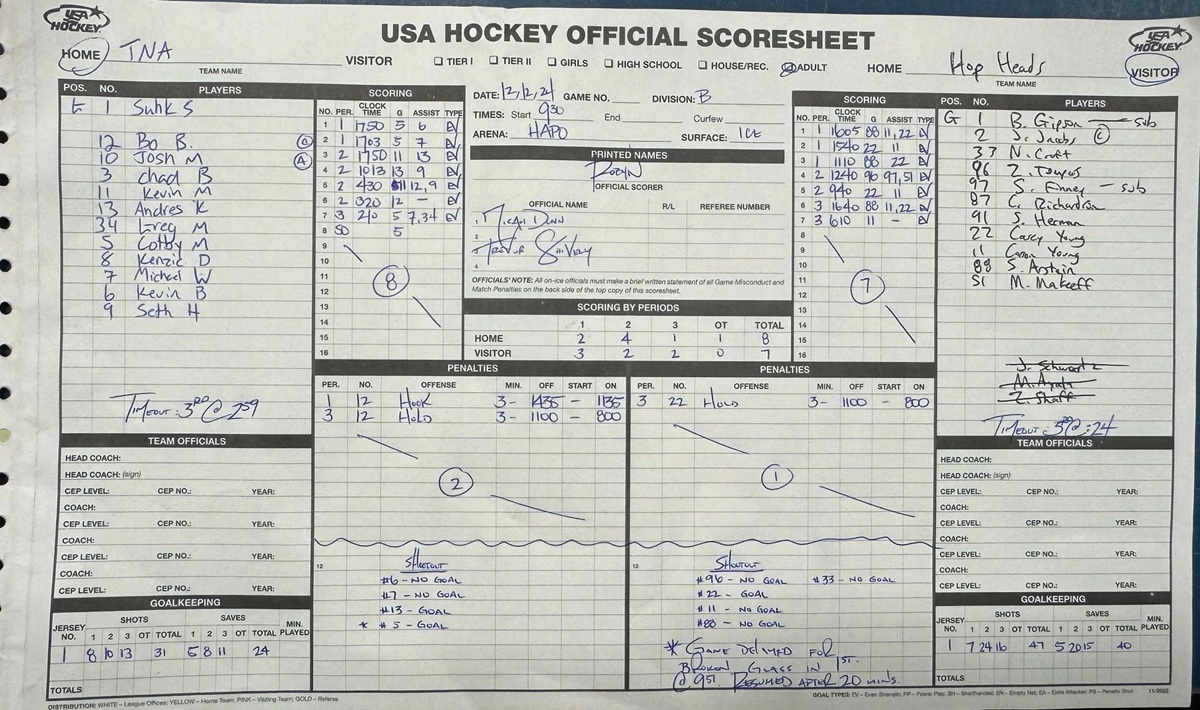 USA HOCKEY
USA HOCKEY OFFICIAL SCORESHEET
USA HOCKEY
HOME TNA VISITOR
TEAM NAME
TIER I TIER II GIRLS HIGH SCHOOL HOUSE/REC. ADULT
HOME Hop Heads VISITOR
TEAM NAME
POS. NO. PLAYERS
G 1 Suhk S
12 Bo B. C
10 Josh M A
3 Chad B
11 Kevin M
13 Andres K
34 Greg M
5 Colby M
8 Kenzie D
7 Michael W
6 Kevin B
9 Seth H
TIMEOUT: 3RD @ 259
SCORING
NO. PER. CLOCK TIME G ASSIST TYPE
1 1 1750 5 6 EV
2 1 1703 5 7 EV
3 2 1750 11 13 EV
4 2 1013 13 9 EV
5 2 430 11 12,9 EV
6 2 320 12 – EV
7 3 240 5 7,34 EV
8 SO 5
9
10
11
12
13
14
15
16
8
DATE: 12/12/24 GAME NO. DIVISION: B
TIMES: Start 930 End Curfew
ARENA: HAPO SURFACE: ICE
PRINTED NAMES
ROBYN
OFFICIAL SCORER
OFFICIAL NAME R/L REFEREE NUMBER
1 MICAH DUNN
2
3 TREVOR
4
OFFICIALS' NOTE: All on-ice officials must make a brief written statement of all Game Misconduct and
Match Penalties on the back side of the top copy of this scoresheet.
SCORING BY PERIODS
1 2 3 OT TOTAL
HOME 2 4 1 1 8
VISITOR 3 2 2 0 7
SCORING
NO. PER. CLOCK TIME G ASSIST TYPE
1 1 1605 88 11,22 EV
2 1 1540 22 11 EV
3 1 1110 88 22 EV
4 2 1240 96 97,51 EV
5 2 940 22 11 EV
6 3 1640 88 11,22 EV
7 3 610 11 – EV
8
9
10
11
12
13
14
15
16
7
POS. NO. PLAYERS
G 1 B. Gipson — sub
2 J. Jacobs C
37 N. Croft
96 Z.
97 S. Finney — sub
87 C. Richardson
91 S. Herman
22 Casey Young
11 Young
88 S. Arstein
51 M. Makeeff
J. Schwartz
M. Ayala
Z. Shaff
TIMEOUT: 3RD @ :24
PENALTIES
PER. NO. OFFENSE MIN. OFF START ON
1 12 HOOK 3- 1435 – 1135
3 12 HOLD 3- 1100 – 800
2
12
SHOOTOUT
#6 - NO GOAL
#7 - NO GOAL
#13 - GOAL
* #5 - GOAL
PENALTIES
PER. NO. OFFENSE MIN. OFF START ON
3 22 HOLD 3- 1100 – 800
1
12
SHOOTOUT
#96 - NO GOAL #33 - NO GOAL
#22 - GOAL
#11 - NO GOAL
#88 - NO GOAL
* GAME DELAYED FOR
BROKEN GLASS IN 1ST.
@ 951 RESUMED AFTER 20 MINS.
TEAM OFFICIALS
HEAD COACH:
HEAD COACH: (sign)
CEP LEVEL: CEP NO.: YEAR:
COACH:
CEP LEVEL: CEP NO.: YEAR:
COACH:
CEP LEVEL: CEP NO.: YEAR:
COACH:
CEP LEVEL: CEP NO.: YEAR:
GOALKEEPING
JERSEY NO. SHOTS 1 2 3 OT TOTAL SAVES 1 2 3 OT TOTAL MIN. PLAYED
1 8 10 13 31 5 8 11 24
TOTALS
TEAM OFFICIALS
HEAD COACH:
HEAD COACH: (sign)
CEP LEVEL: CEP NO.: YEAR:
COACH:
CEP LEVEL: CEP NO.: YEAR:
COACH:
CEP LEVEL: CEP NO.: YEAR:
COACH:
CEP LEVEL: CEP NO.: YEAR:
GOALKEEPING
JERSEY NO. SHOTS 1 2 3 OT TOTAL SAVES 1 2 3 OT TOTAL MIN. PLAYED
1 7 24 16 47 5 20 15 40
TOTALS
DISTRIBUTION: WHITE – League Offices; YELLOW – Home Team; PINK – Visiting Team; GOLD – Referee
GOAL TYPES: EV – Even Strength, PP – Power Play, SH – Shorthanded, EN – Empty Net, EA – Extra Attacker, PS – Penalty Shot 11/2022